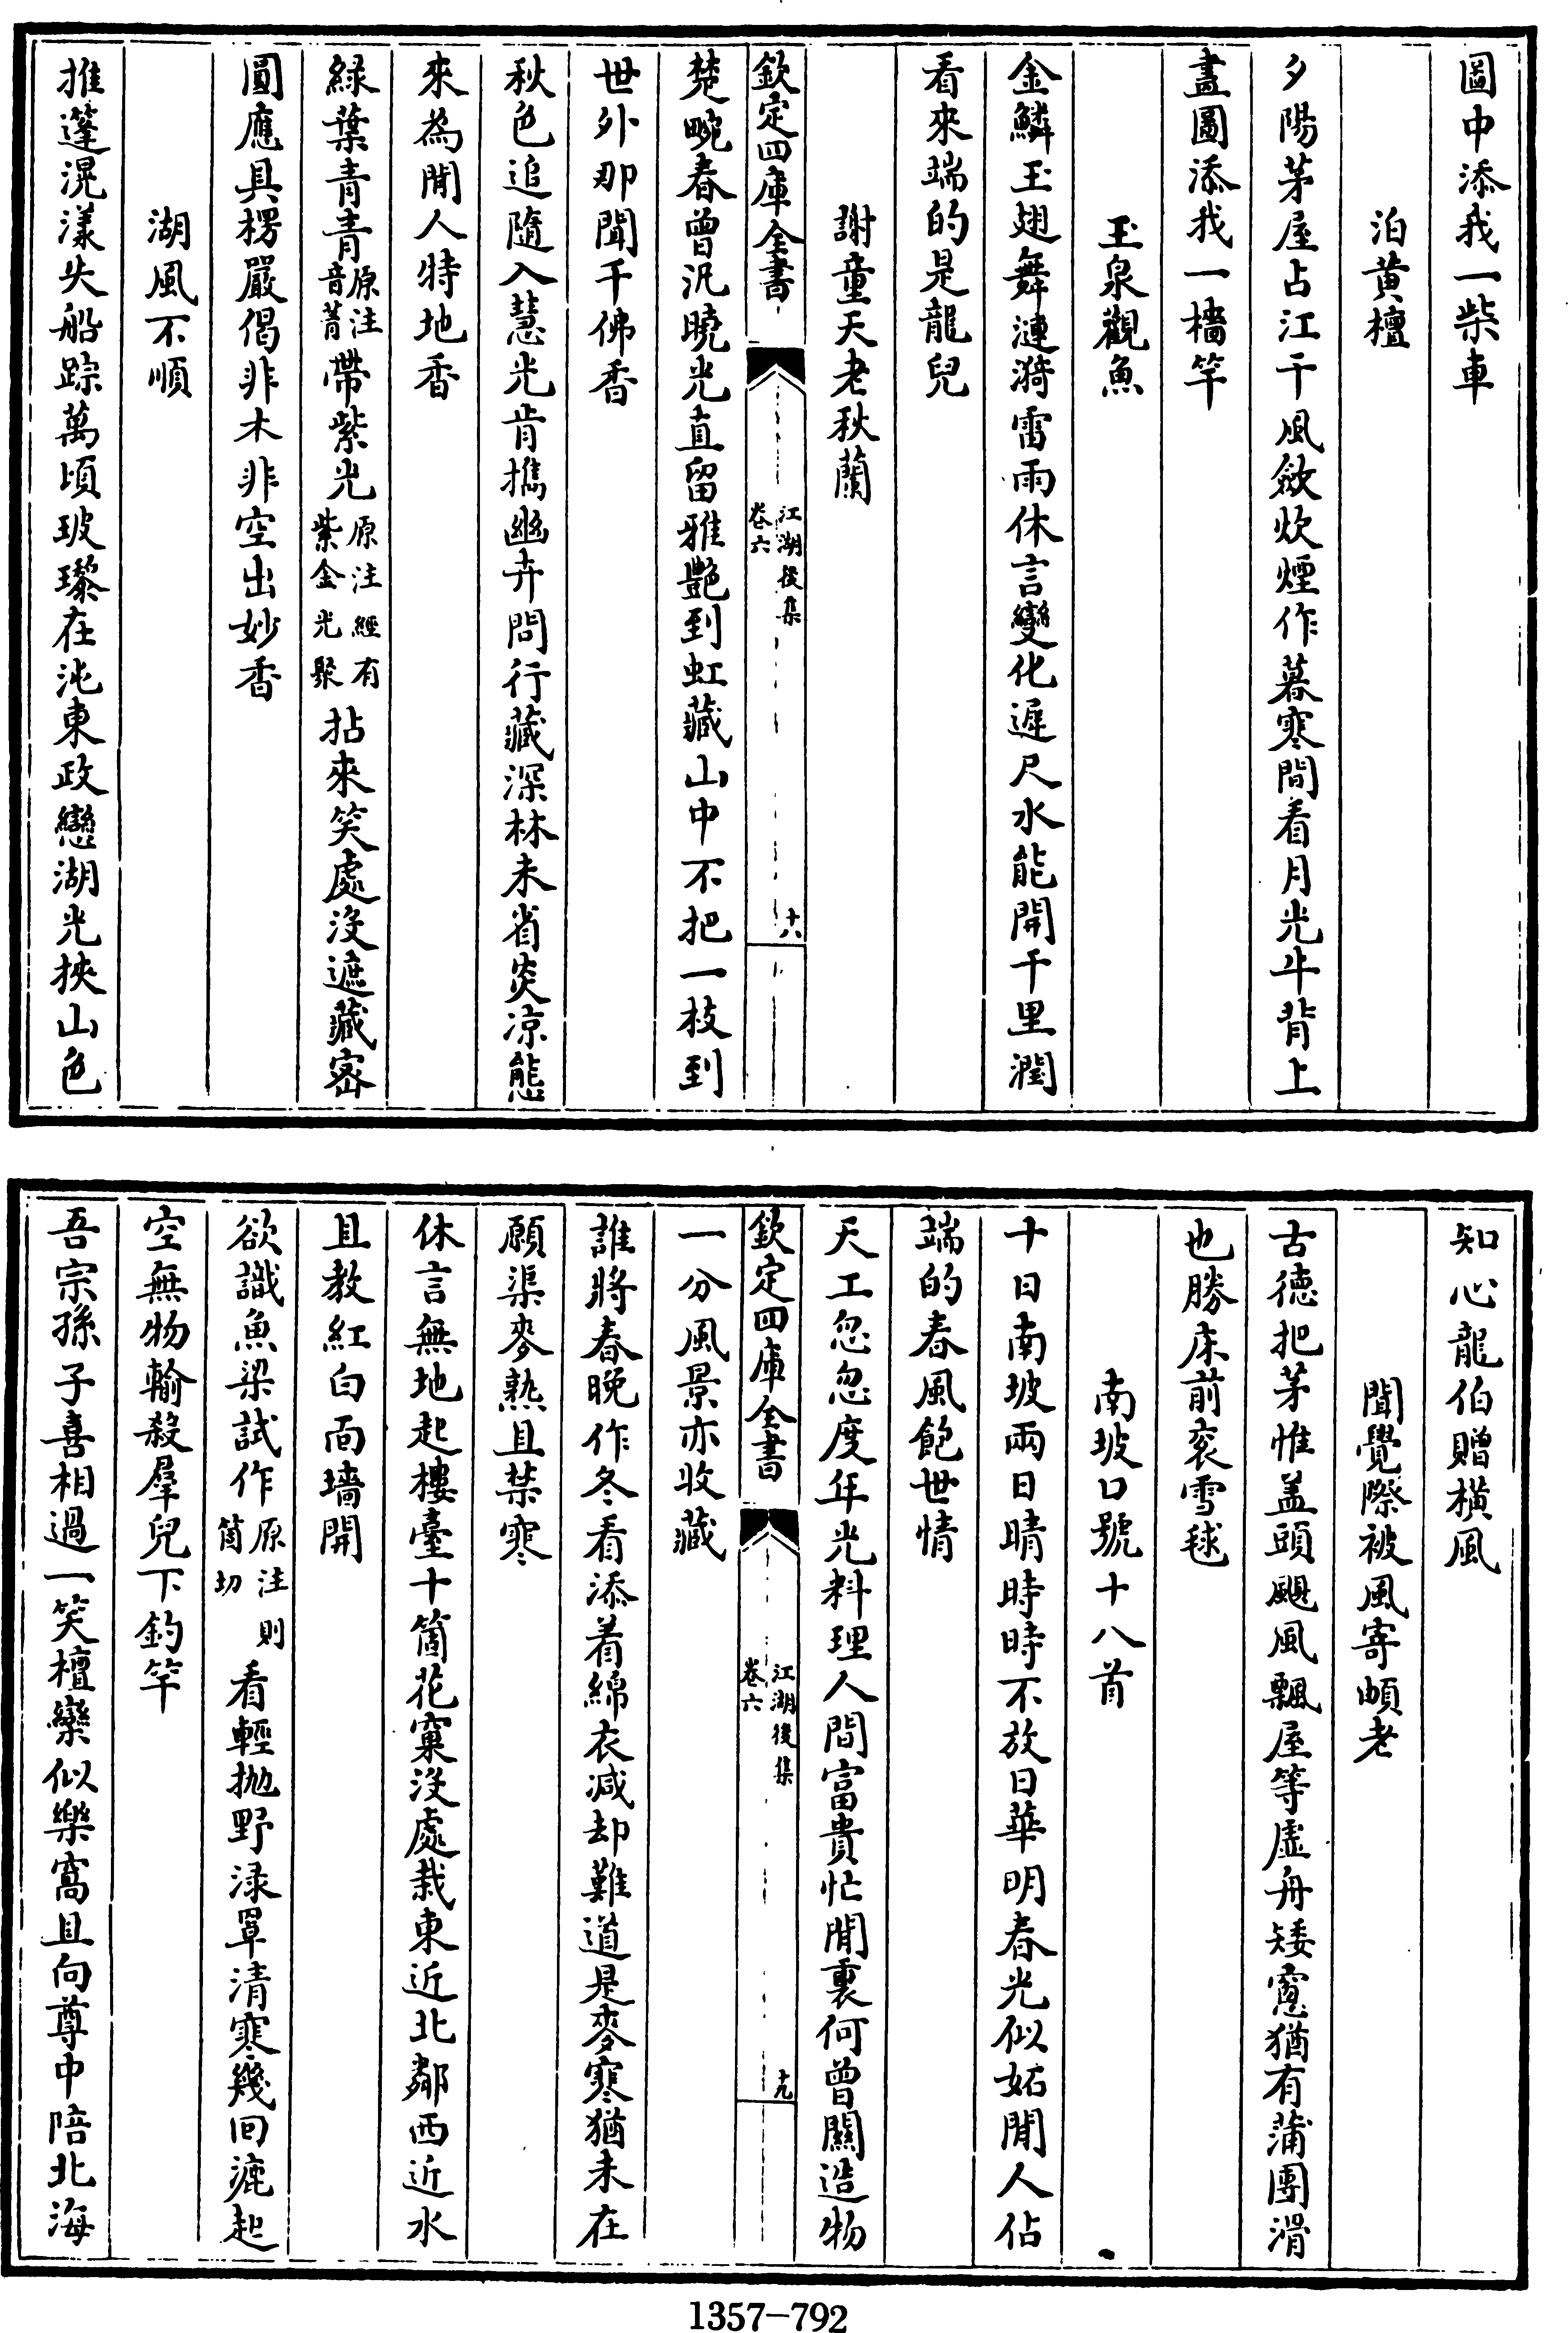 圖中添我一柴車
泊黄檀
夕陽茅屋占江干風斂炊煙作暮寒間看月光牛背上
畫圖添我一檣竿
玉泉觀魚
金鱗玉翅舞漣漪雷雨休言變化遲尺水能開千里潤
看來端的是龍兒
謝童天老秋蘭
欽定四庫全書
江湖後集
卷六
十八
楚畹春曾汎曉光直留雅艷到虹藏山中不把一枝到
世外那聞千佛香
秋色追隨入慧光肯攜幽卉問行藏深林未省炎凉態
來為閒人特地香
緑葉青青原注音菁帶紫光原注經有紫金光聚拈來笑處沒遮藏密
圓應具楞嚴偈非木非空出妙香
湖風不順
推蓬滉漾失船踪萬頃玻瓈在沌東政戀湖光挾山色
知心龍伯贈横風
聞覺際被風寄頔老
古德把茅惟盖頭颶風飄屋等虛舟矮窻猶有蒲團滑
也勝床前衮雪毬
南坡口號十八首
十日南坡兩日晴時時不放日華明春光似妬閒人佔
端的春風飽世情
天工忽忽度年光料理人間富貴忙閒裏何曾關造物
一分風景亦收藏
欽定四庫全書
江湖後集
卷六
十九
誰將春晚作冬看添着綿衣减却難道是麥寒猶未在
願渠麥熟且禁寒
休言無地起樓臺十箇花窠沒處栽東近北鄰西近水
且教紅白面墻開
欲識魚梁試作原注則箇切看輕抛野渌罩清寒幾回漉起
空無物輸殺羣兒下釣竿
吾宗孫子喜相過一笑檀欒似樂窩且向尊中陪北海
1357-792